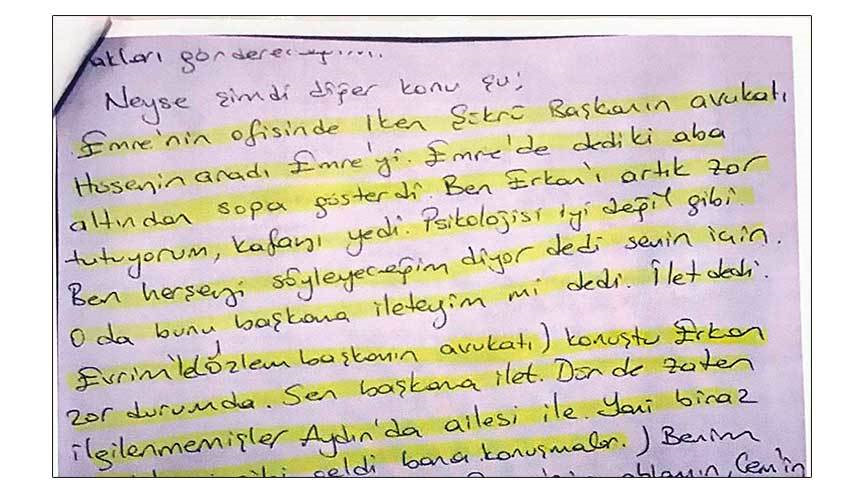 akları göndereceğim.
Neyse şimdi diğer konu şu;
Emre'nin ofisinde iken Şükrü Başkanın avukatı
Hüseyin aradı Emre'yi. Emre'de dedi ki aba
altından sopa gösterdi. Ben Erkan'ı artık zor
tutuyorum, kafayı yedi. Psikolojisi iyi değil gibi.
Ben herşeyi söyleyeceğim diyor dedi senin için.
O da bunu başkana ileteyim mi dedi. İlet dedi.
Evrim'le Özlem başkanın avukatı) konuştu Erkan
zor durumda. Sen başkana ilet. Dün de zaten
ilgilenmemişler Aydın'da ailesi ile. Yani biraz
geldi bana konuşmalar.) Benim
ablamın, Cem'in